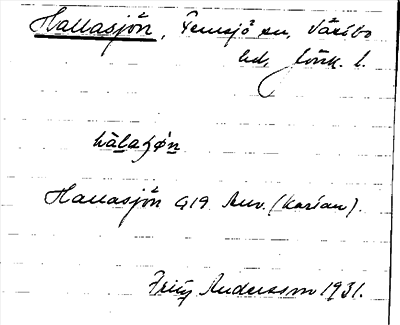 Hallasjön, Femsjö sn, Västbo
hd, Jönk. l.
hàlaʃø̀n
Hallasjön G19 Anv. (Karian).
Fritz Andersson 1931.